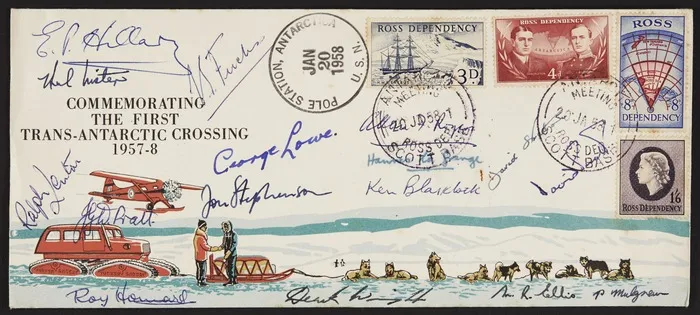 E. P. Hillary
V. E. Fuchs
COMMEMORATING
THE FIRST
TRANS-ANTARCTIC CROSSING
1957-8
POLE STATION, ANTARCTICA
JAN
20
1958
U. S. N.
ROSS DEPENDENCY
3D
ROSS DEPENDENCY
ANTARCTIC
4D
ROSS
8D
8D
DEPENDENCY
1/6
ROSS DEPENDENCY
MEETING
20 JA 58
ROSS DEP.
SCOTT BASE
MEETING
20 JA 58
ROSS DEP.
SCOTT BASE
George Lowe.
Jon Stephenson
Ken Blaiklock
David
Ralph Lenton
Roy Homard
Derek Wright
M. R. Ellis
P Mulgrew